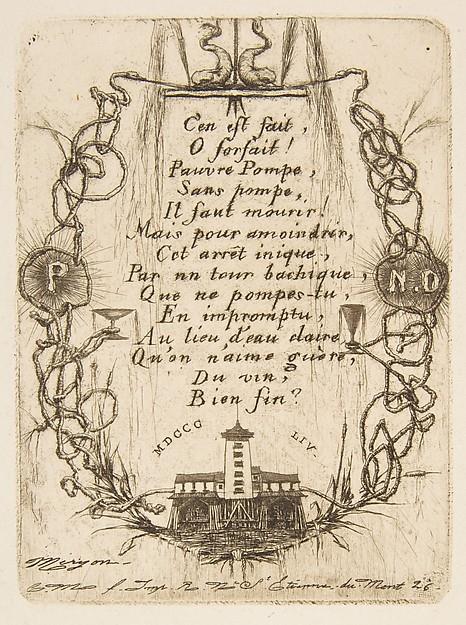 Cen est fait,
O forfait!
Pauvre Pompe,
Sans pompe,
Il faut mourir!
Mais pour amoindrir,
Cet arrêt inique,
Par nn tour bachique,
Que ne pompes-tu,
En impromptu,
Au lieu d'eau claire,
Qu'on n'aime guère,
Du vin,
Bien fin?
P
N.D
MDCCC LIV.
Meryon
C. M. f. Imp. R. Nve St Etienne-du-Mont 26.